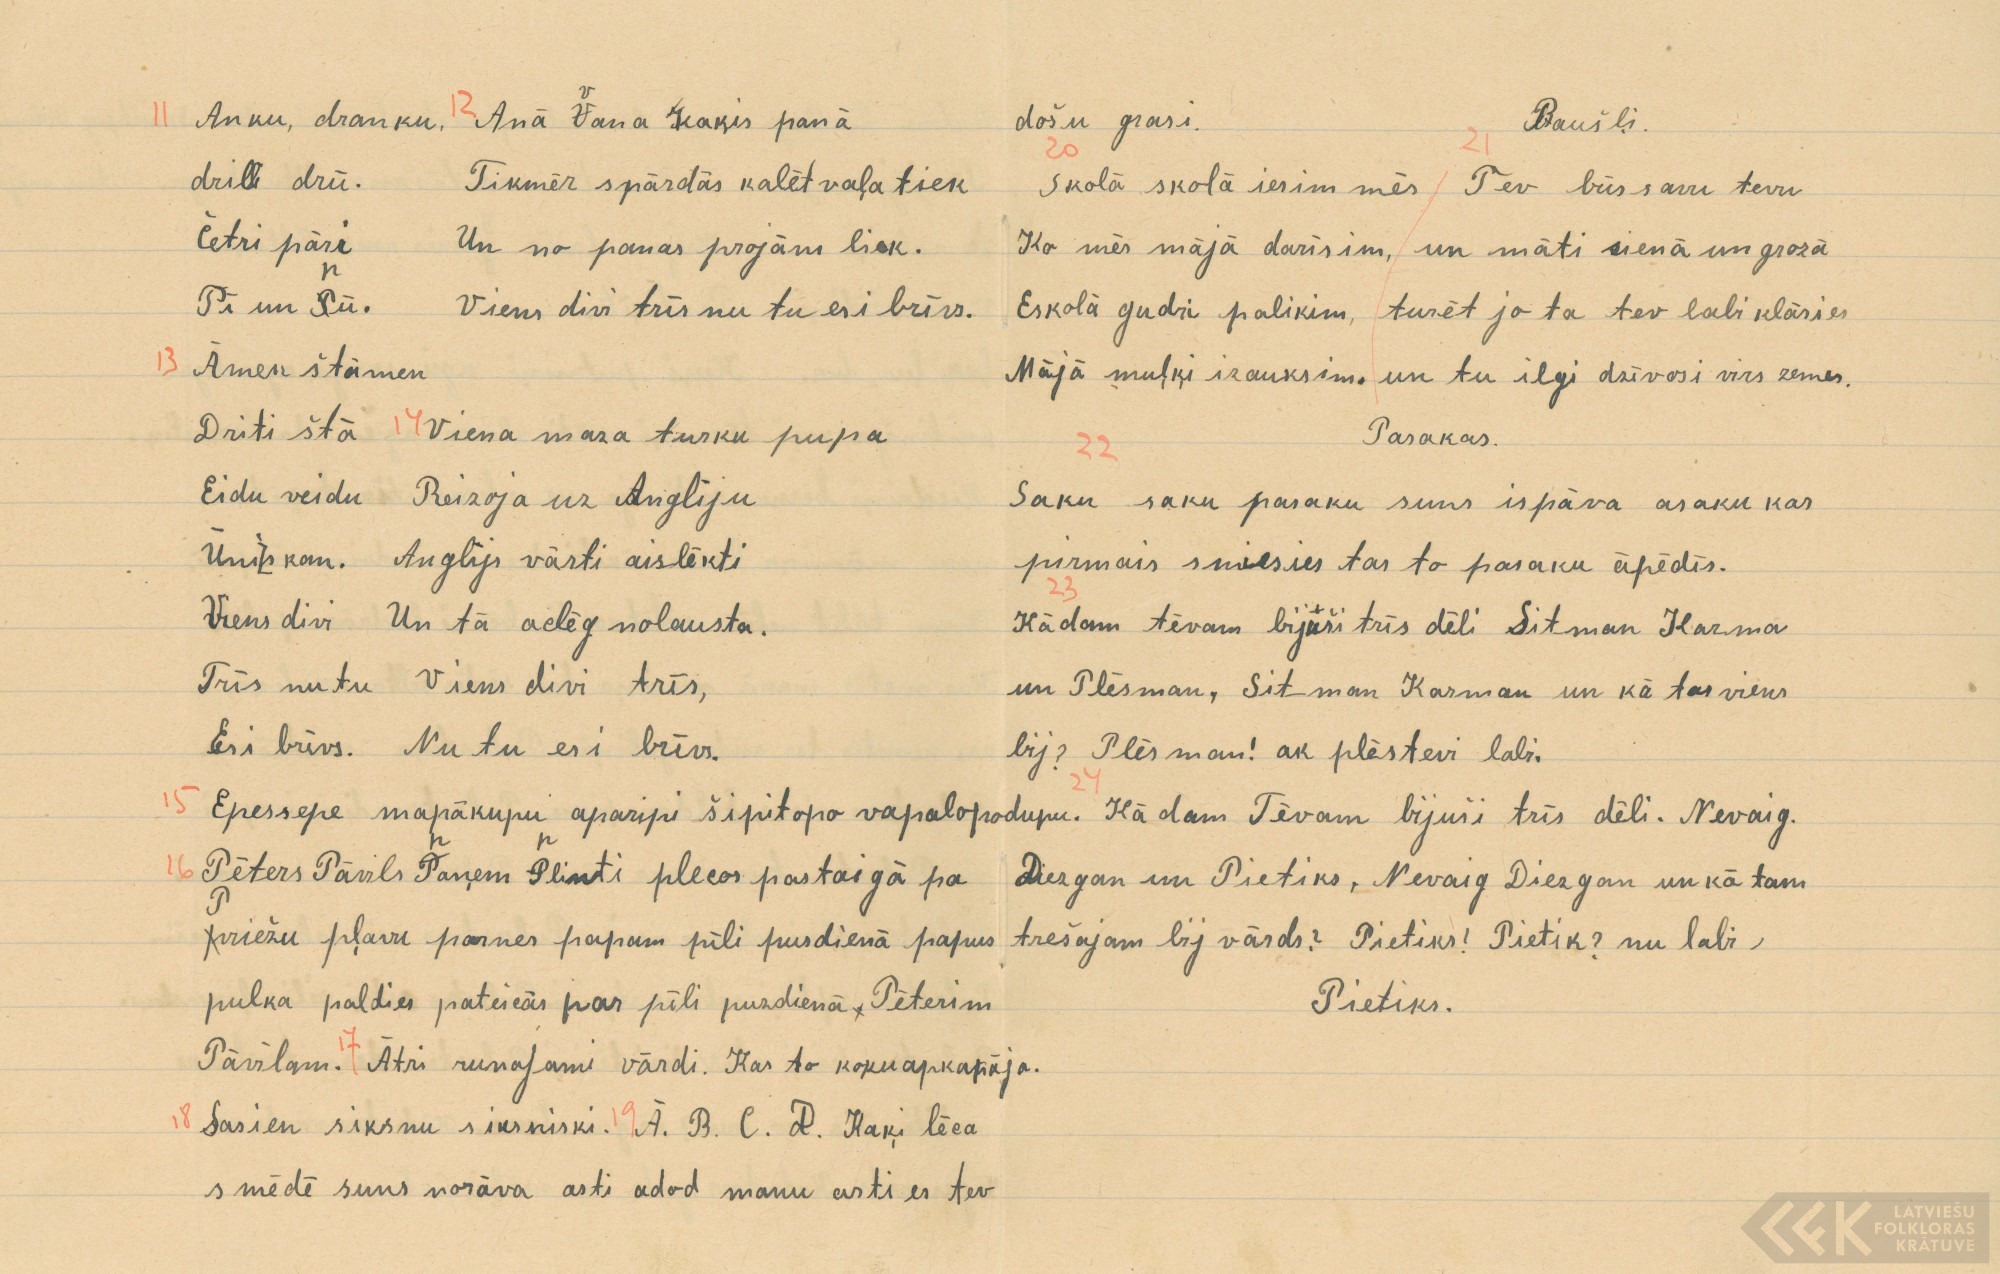 11 Anku, dranku,
drill drū.
Četri pāri
Pī un Pū.
12 Anā Vana Kaķis panā
Tikmēr spārdās kalēt vaļa tiek
Un no panas projām liek.
Viens divi trīs nu tu esi brīvs.
13 Āmen štāmen
Driti štā
Eidu veidu
kan.
Viens divi
Trīs nu tu
Esi brīvs.
14 Viena maza turku pupa
Reizoja uz Angliju
Anglijs vārti aislēkti
Un tā aclēg nolausta.
Viens divi trīs,
Nu tu esi brīvs.
15 Epessepe mapākupu aparipi šipitopo vapalopodupu.
16 Pēters Pāvils Paņem Plinti plecos pastaigā pa
priežu pļavu parnes papam pīli pusdienā papus
pulka paldies pateicās par pīli puzdienā Pēterim
Pāvīlam. 17 Ātri runajami vārdi. Kas to koku apkapāja.
18 Sasien siksnu siksniski. 19 Ā. B. C. D. Kaķi lēca
smēdē suns norāva asti adod manu asti es tev
došu grasi.
20
Skolā skolā iesim mēs
Ko mēs mājā darīsim,
Eskolā gudri palikim,
Mājā muļķi izauksim.
Baušļi.
21
Tev būs savu tevu
un māti sienā un grozā
turēt jo ta tev labi klāsies
un tu ilgi dzīvosi virs zemes.
Pasakas.
22
Saku saku pasaku suns ispāva asaku kas
pirmais smiesies tas to pasaku āpēdīs.
23
Kādam tēvam bijuši trīs dēli Sitman Karma
un Plēsman, Sitman Karman un kā tas viens
bij? Plēsman! ak plēstevi labi.
24
Kādam Tēvam bijuši trīs dēli. Nevaig.
Diezgan un Pietiks, Nevaig Diezgan un kā tam
trešajam bij vārds? Pietiks! Pietik? nu labi,
Pietiks.
LATVIEŠU
FOLKLORAS
KRĀTUVE